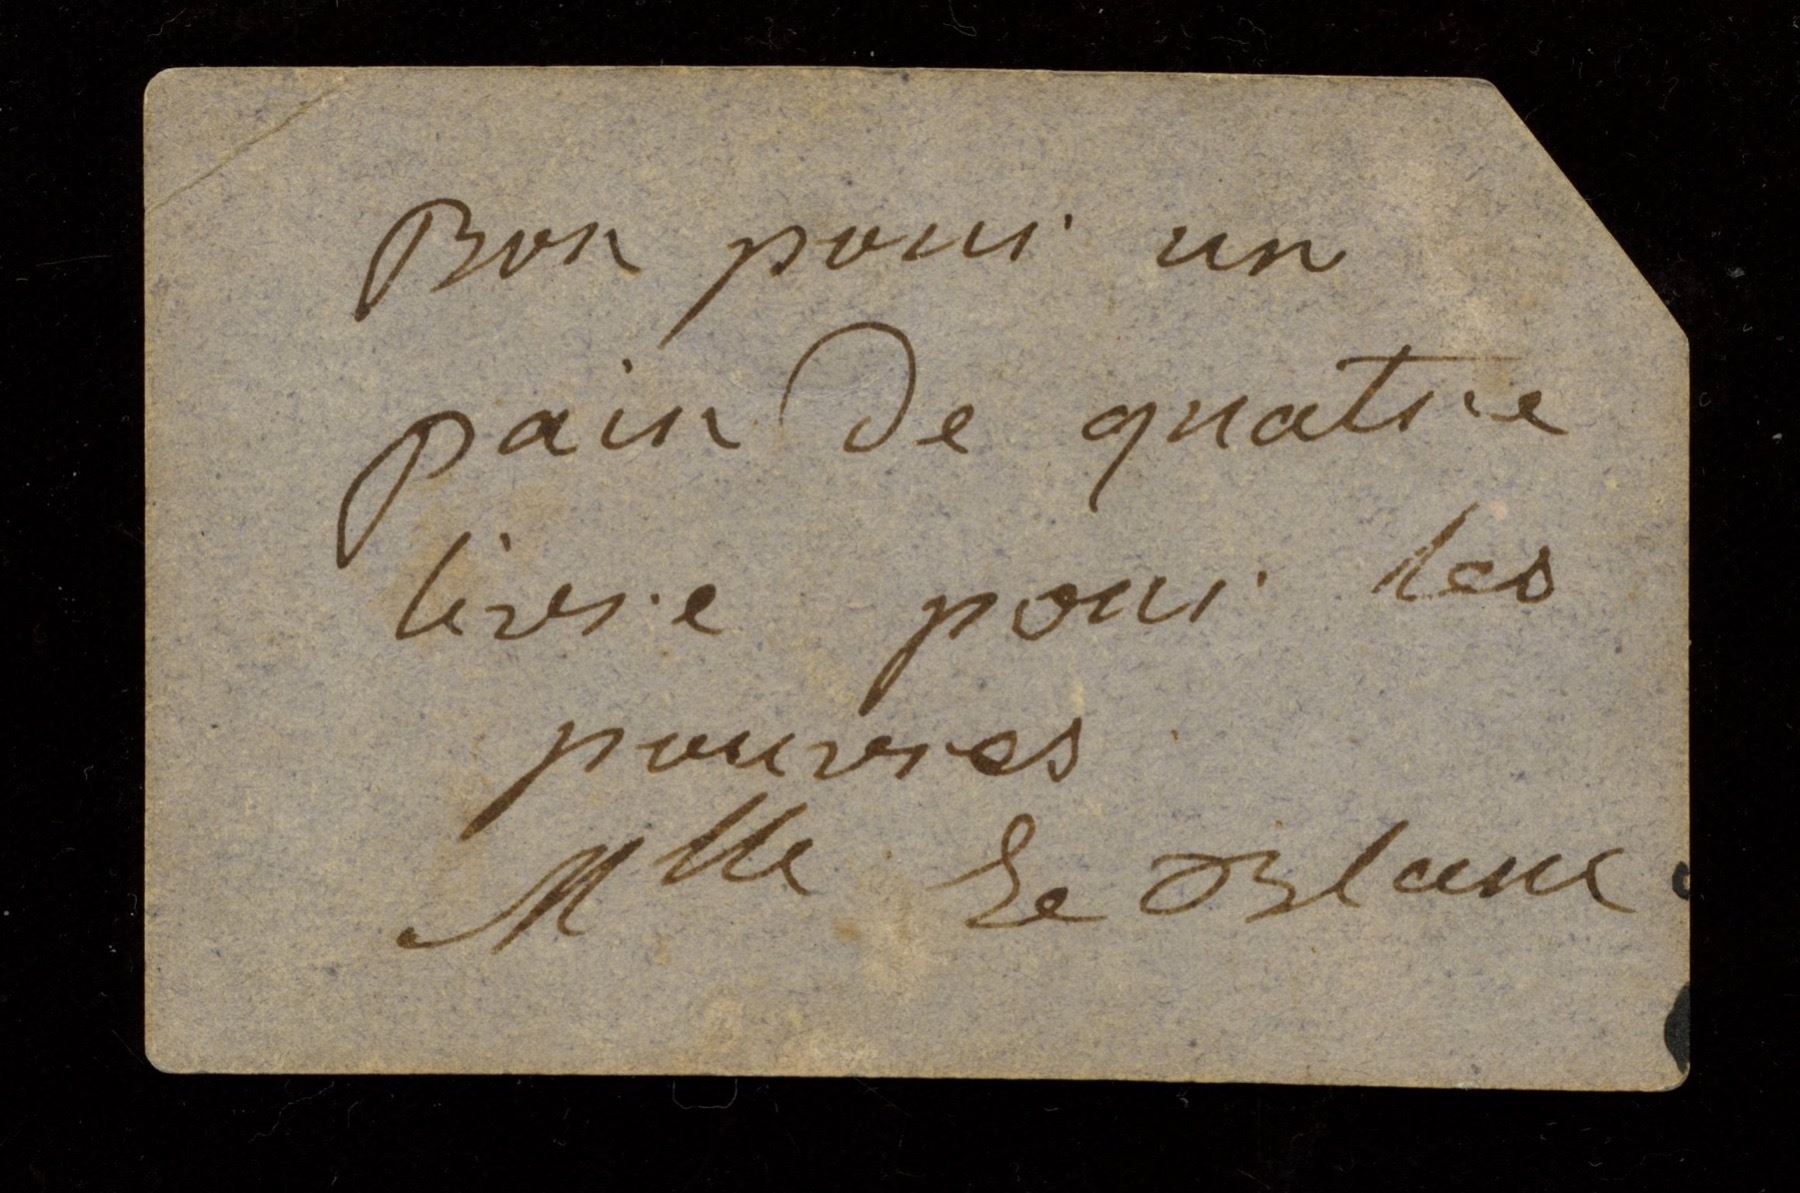 Bon pour un
pain de quatre
livre pour les
pouvres
Mlle Le Blanc